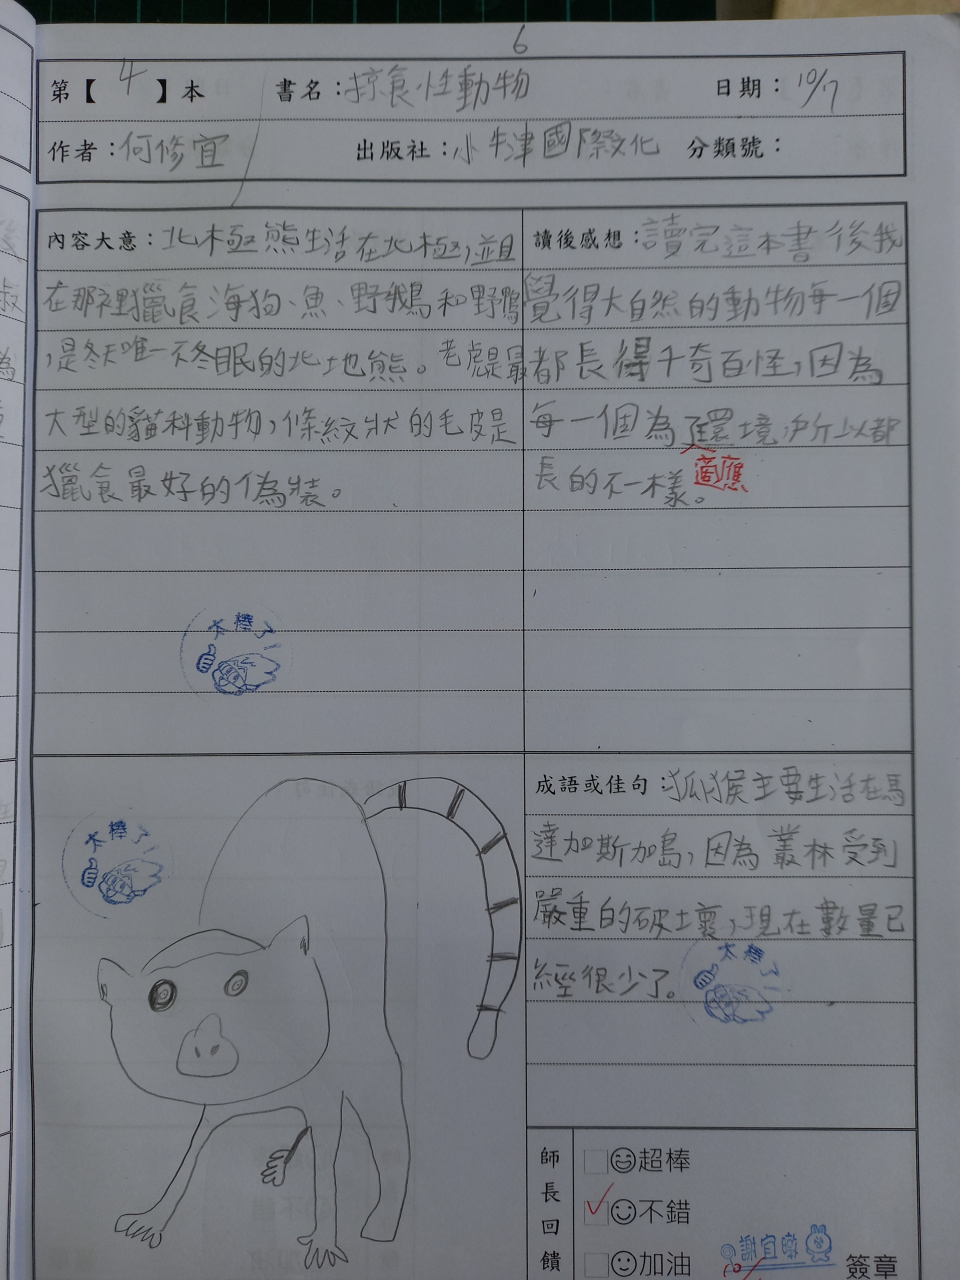 6
第【 4 】本 書名：掠食性動物 日期：10/7
作者：何修宜 出版社：小牛津國際文化 分類號：
內容大意：北極熊生活在北極，並且
在那裡獵食海狗、魚、野鵝和野鴨
，是冬天唯一不冬眠的北地熊。老虎是最
大型的貓科動物，條紋狀的毛皮是
獵食最好的偽裝。
讀後感想：讀完這本書後我
覺得大自然的動物每一個
都長得千奇百怪，因為
每一個為了環境所以都
適應
長的不一樣。
太棒了
太棒了
成語或佳句：狐猴主要生活在馬
達加斯加島，因為叢林受到
嚴重的破壞，現在數量已
經很少了。
太棒了
師長回饋
超棒
不錯
加油
簽章